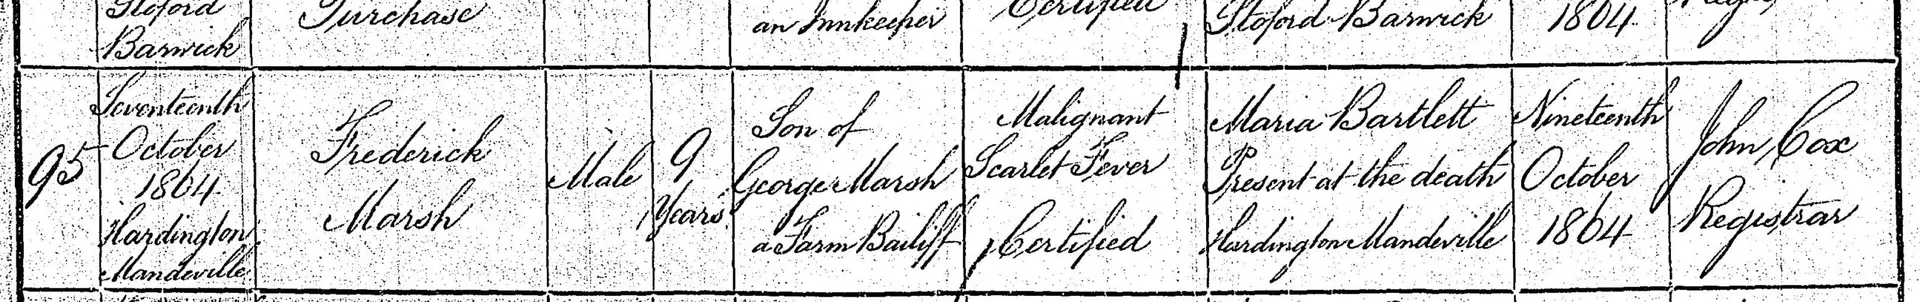 Stoford
Barwick
Purchase
an Innkeeper
Certified
Stoford Barwick
1864
95
Seventeenth
October
1864
Hardington
Mandeville
Frederick
Marsh
Male
9
Years
Son of
George Marsh
a Farm Bailiff
Malignant
Scarlet Fever
Certified
Maria Bartlett
Present at the death
Hardington Mandeville
Nineteenth
October
1864
John Cox
Registrar